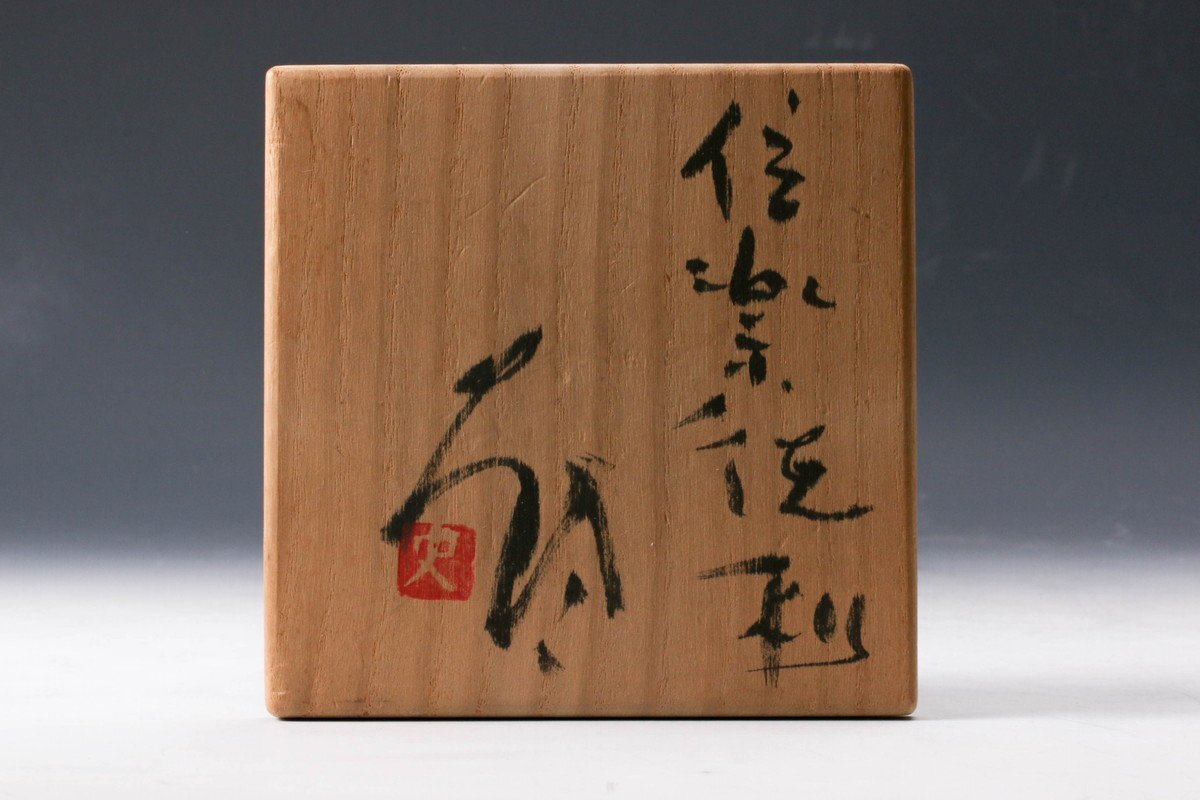 信楽徳利
史